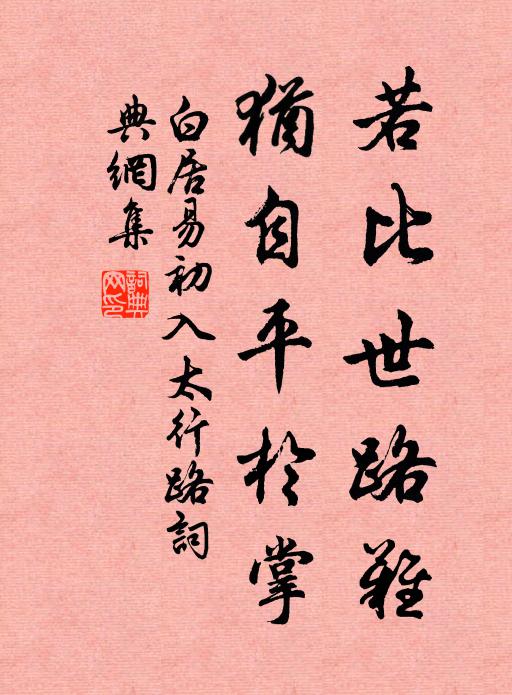 若比世路難
猶自平於掌
白居易初入太行路詞
典網集
詞典網印